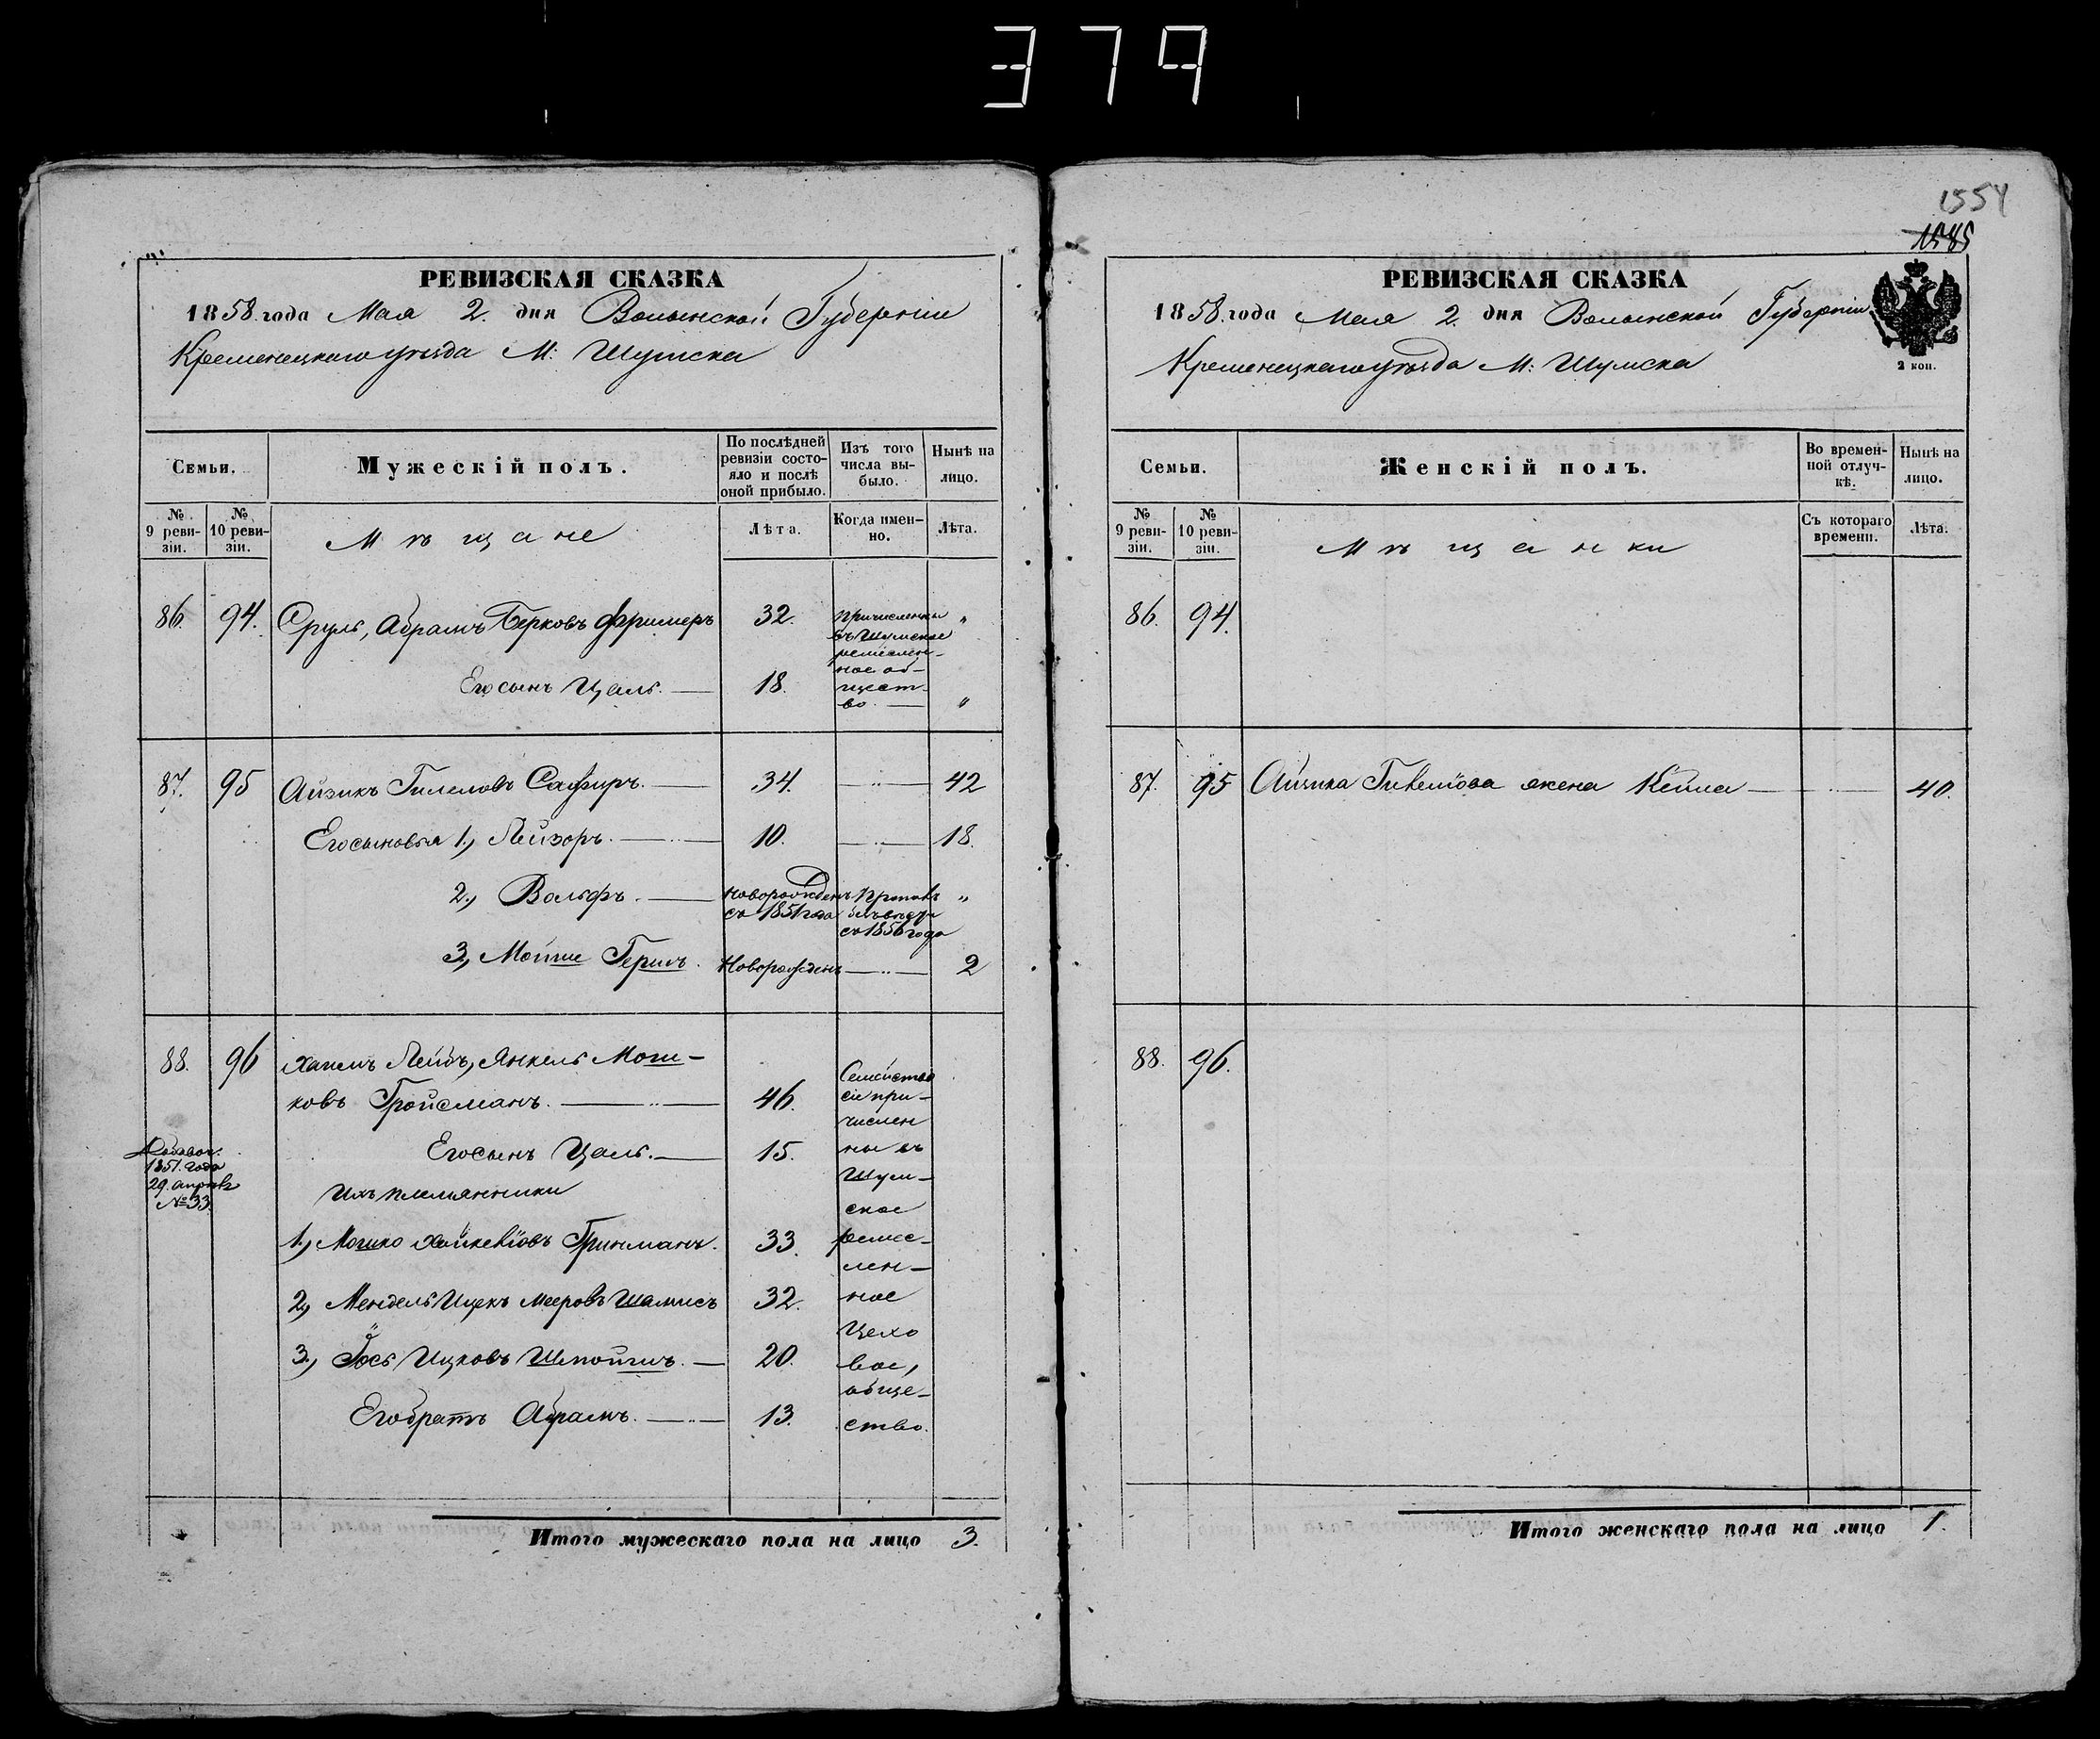 379
1554
1585
РЕВИЗСКАЯ СКАЗКА
1858. года Мая 2. дня Волынской Губерніи
Кременецкаго уѣзда М: Шумска
Семьи.
Мужескій полъ.
По послѣдней ревизіи состояло и послѣ оной прибыло.
Изъ того числа выбыло.
Нынѣ на лицо.
№ 9 ревизіи.
№ 10 ревизіи.
Мѣщане
Лѣта.
Когда именно.
Лѣта.
86. 94. Сруль, Абрамъ Берковъ Фримеръ 32. причислены "
въ Шумское
ремеслен-
ное об-
Его сынъ Цаль. 18. щест-
во. "
87. 95 Айзикъ Гилеловъ Сафиръ. 34. 42
Его сыновья 1., Лейзоръ. 10. 18.
2., Вольфъ. Новорожденъ "
съ 1851 года
съ 1856 года
3., Мошше Гершъ. Новорожденъ 2
88. 96 Хаимъ Лейбъ, Янкель Мош-
ковъ Гройсманъ. 46. Семейство
сіе при-
числен
Его сынъ Цаль. 15. ны въ
Шум-
1851. года
29. апрѣля
№ 33.
Ихъ племянники
ское
1., Мошко Хайкелiовъ Гринманъ. 33. ремес-
лен-
2., Мендель Ицекъ Мееровъ Шамисъ 32. ное
Цехо
3., Іось Ицковъ 20. вое,
обще-
Его братъ Абрамъ. 13. ство.
Итого мужескаго пола на лицо 3.
РЕВИЗСКАЯ СКАЗКА
1858. года Мая 2. дня Волынской Губерніи
Кременецкаго уѣзда М: Шумска
2 коп.
Семьи.
Женскій полъ.
Во временной отлучкѣ.
Нынѣ на лицо.
№ 9 ревизіи.
№ 10 ревизіи.
Мѣщанки
Съ котораго времени.
Лѣта.
86. 94.
87. 95 Айзика жена Кейла 40.
88. 96.
Итого женскаго пола на лицо 1.